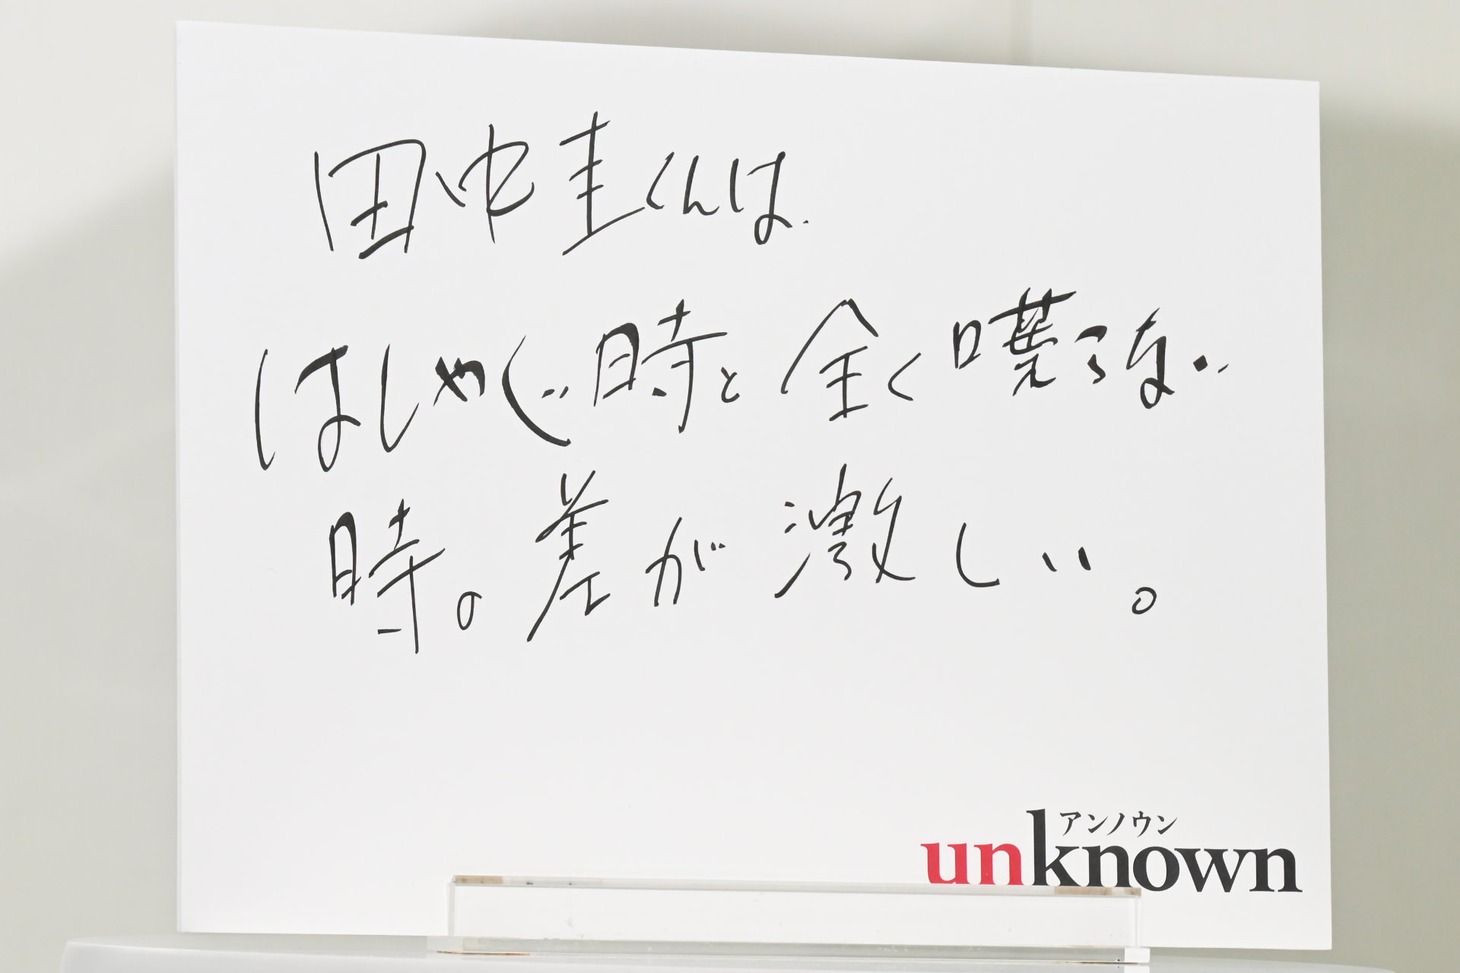 田中圭くんは
はしゃぐ時と全く喋らない
時の差が激しい。
アンノウン
unknown